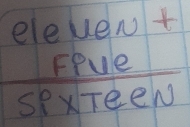 eleven +
Fpve
SPXTeen